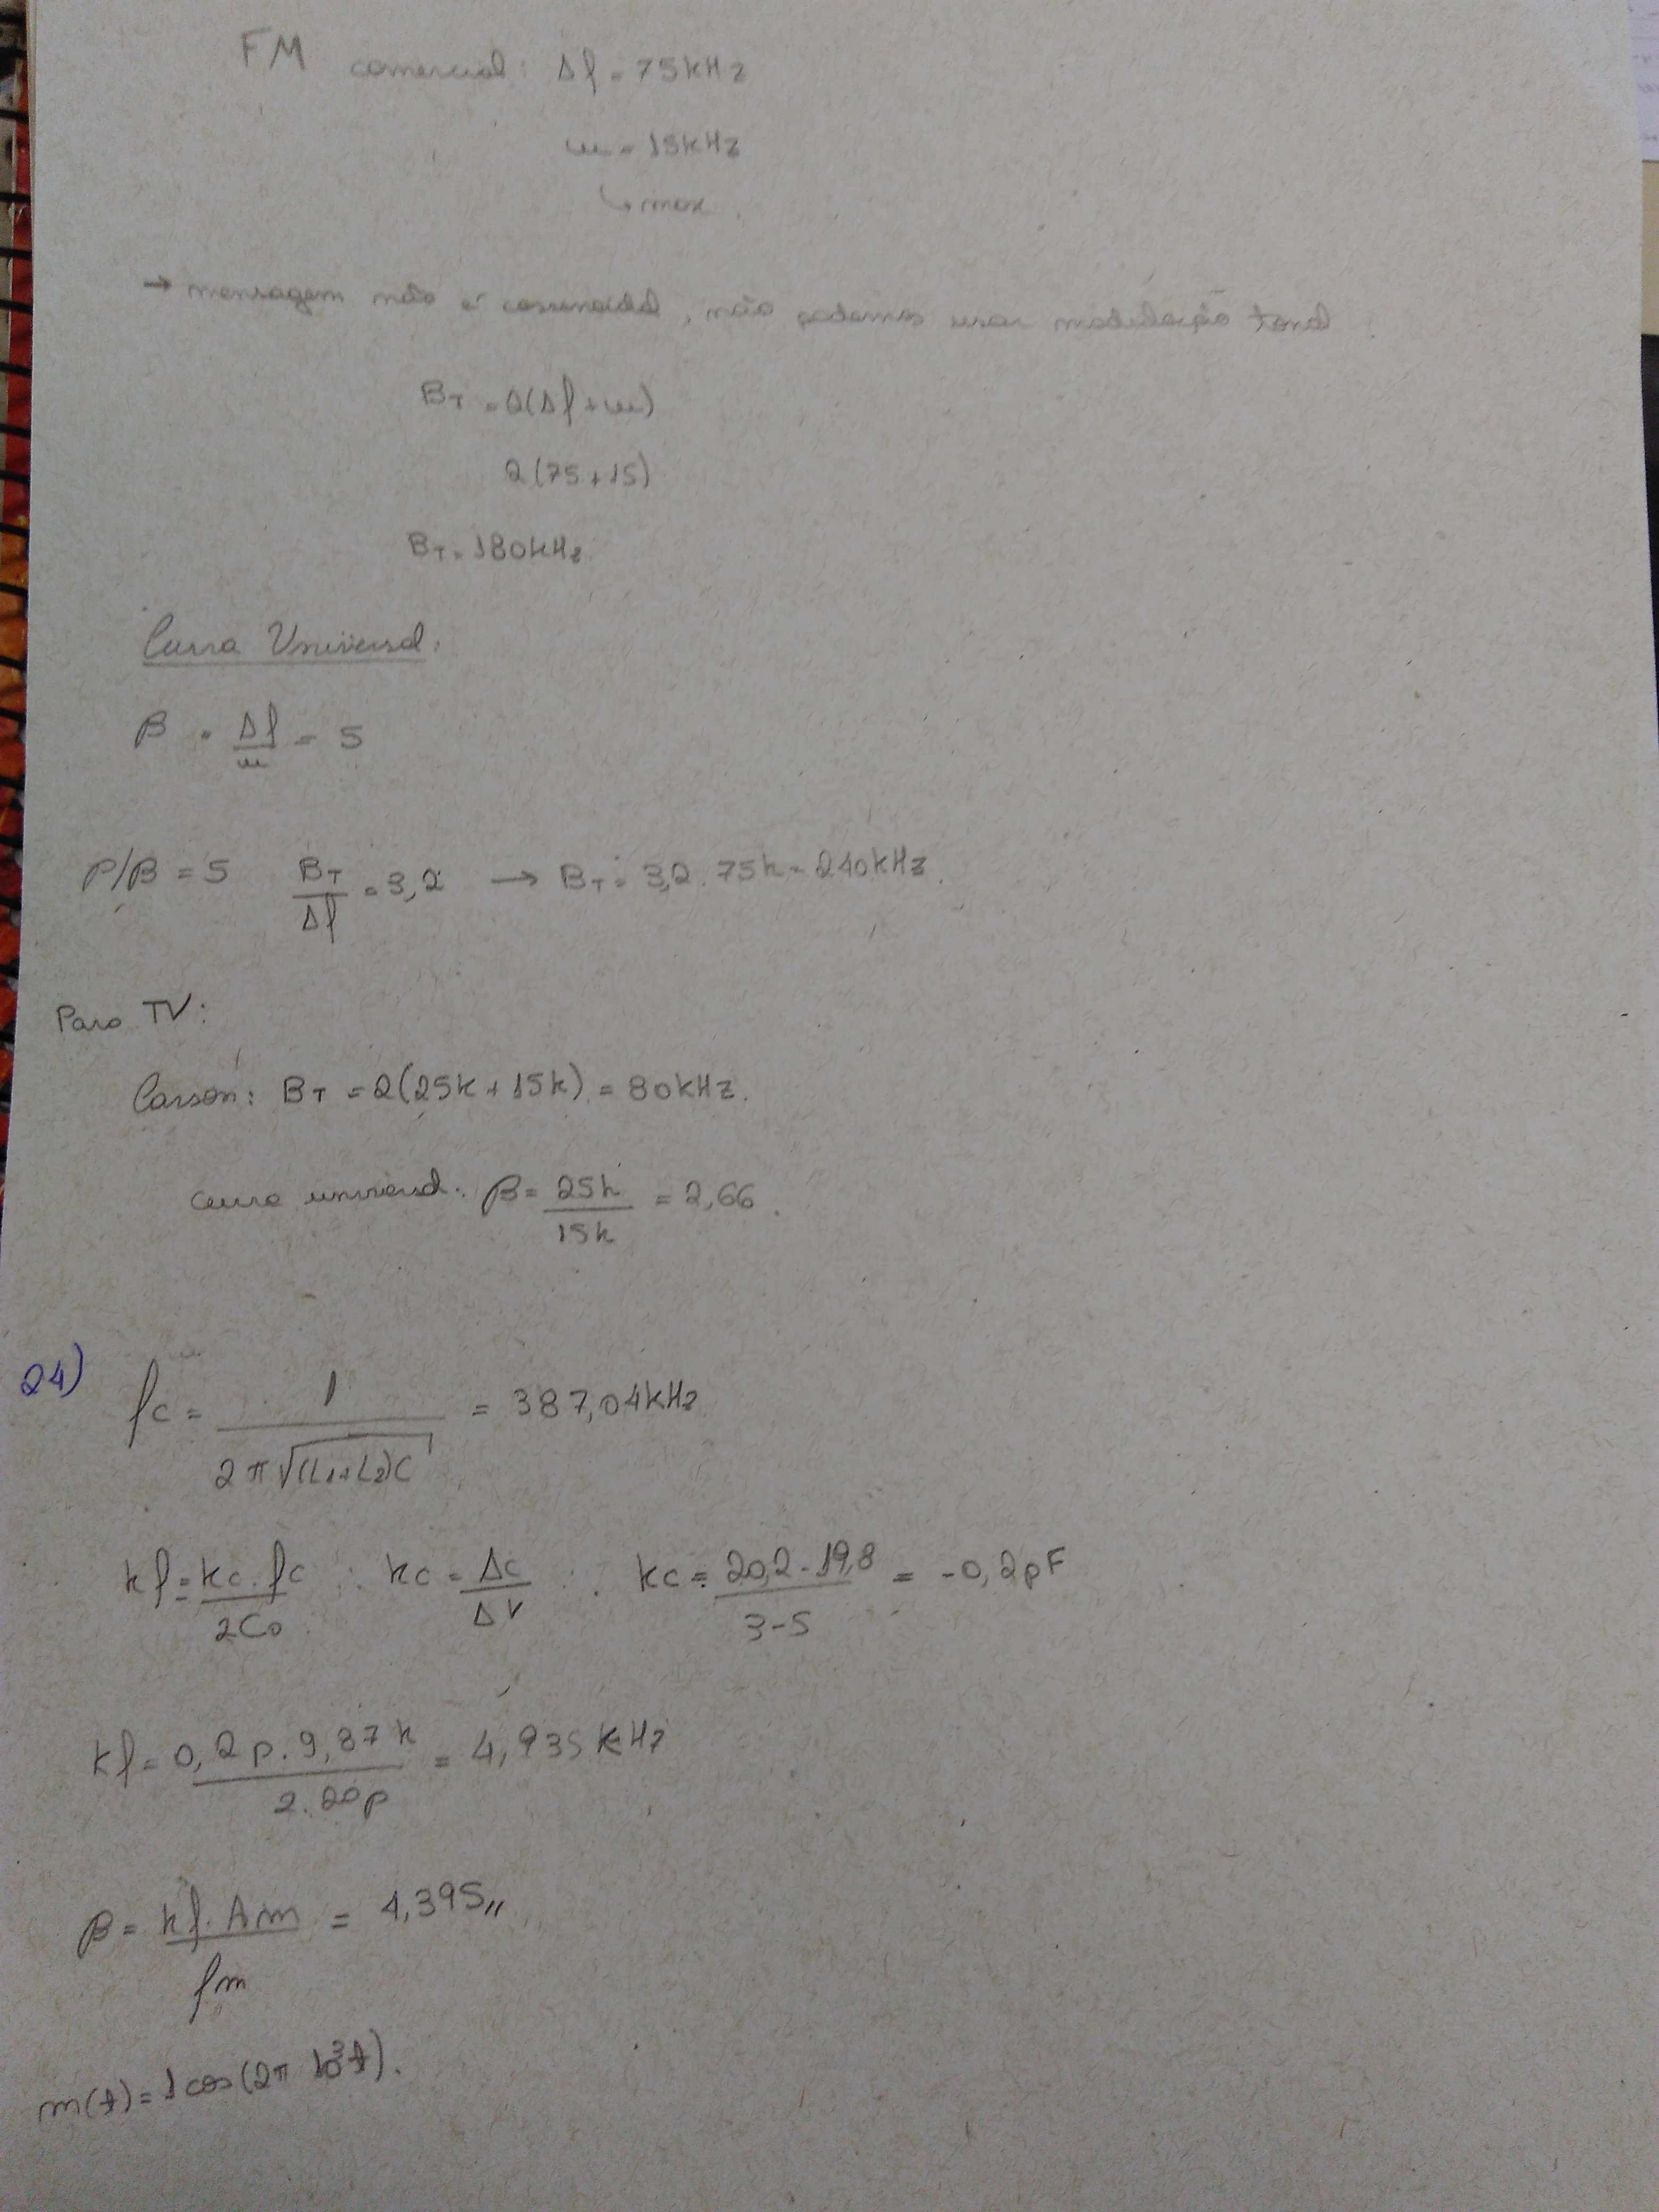 FM comercial: Δf = 75kHz
w = 15kHz
↳ max.
→ mensagem não é cossenoidal, não podemos usar modulação tonal.
BT = 2(Δf + w)
2(75+15)
BT = 180kHz
Curva Universal:
β = Δf/w = 5
P/β = 5 BT/Δf = 3,2 → BT = 3,2 . 75k = 240kHz.
Para TV:
Carson: BT = 2(25k + 15k) = 80kHz.
curva universal: β = 25k/15k = 2,66.
24) fc = 1/2π√(L1+L2)C = 387,04kHz
kf = kc.fc/2C0 ∴ kc = Δc/ΔV ∴ kc = 20,2 - 19,8/3-5 = -0,2pF
kf = 0,2p . 9,87k/2.20p = 4,935kHz
β = kf.Am/fm = 4,395,,
m(t) = 1cos(2π 10³t).